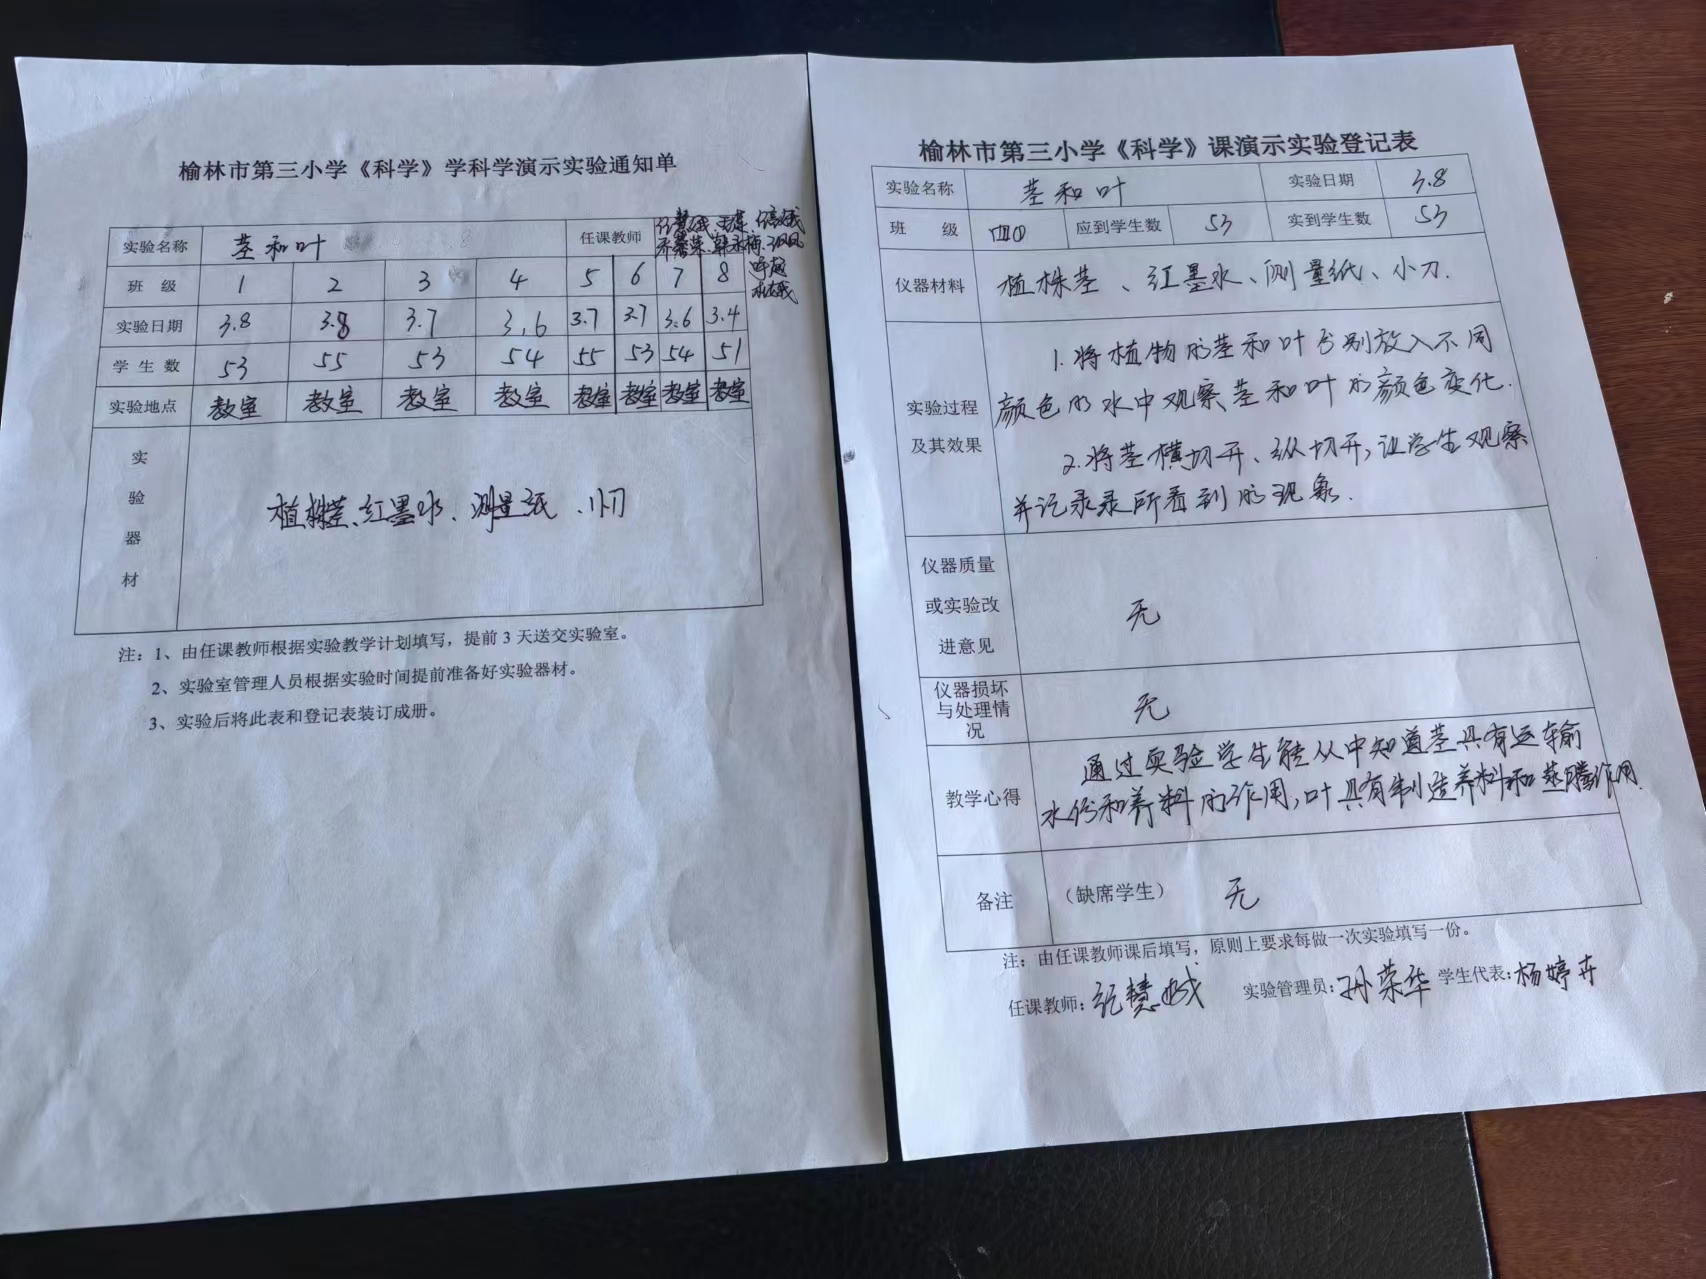 榆林市第三小学《科学》学科学演示实验通知单
实验名称 茎和叶 任课教师
班 级 1 2 3 4 5 6 7 8
实验日期 3.8 3.8 3.7 3.6 3.7 3.7 3.6 3.4
学生数 53 55 53 54 55 53 54 51
实验地点 教室 教室 教室 教室 教室 教室 教室 教室
实验器材 植株茎、红墨水、测量纸、小刀
注：1、由任课教师根据实验教学计划填写，提前3天送交实验室。
2、实验室管理人员根据实验时间提前准备好实验器材。
3、实验后将此表和登记表装订成册。
榆林市第三小学《科学》课演示实验登记表
实验名称 茎和叶 实验日期 3.8
班 级 四(1) 应到学生数 53 实到学生数 53
仪器材料 植株茎、红墨水、测量纸、小刀.
实验过程
及其效果
1.将植物的茎和叶分别放入不同
颜色的水中观察茎和叶的颜色变化.
2.将茎横切开、纵切开,让学生观察
并记录录所看到的现象.
仪器质量
或实验改
进意见
无
仪器损坏
与处理情
况
无
教学心得
通过实验学生能从中知道茎具有运输
水份和养料的作用,叶具有制造养料和蒸腾作用.
备注 （缺席学生） 无
注：由任课教师课后填写，原则上要求每做一次实验填写一份。
任课教师: 实验管理员:孙荣华 学生代表:杨婷卉